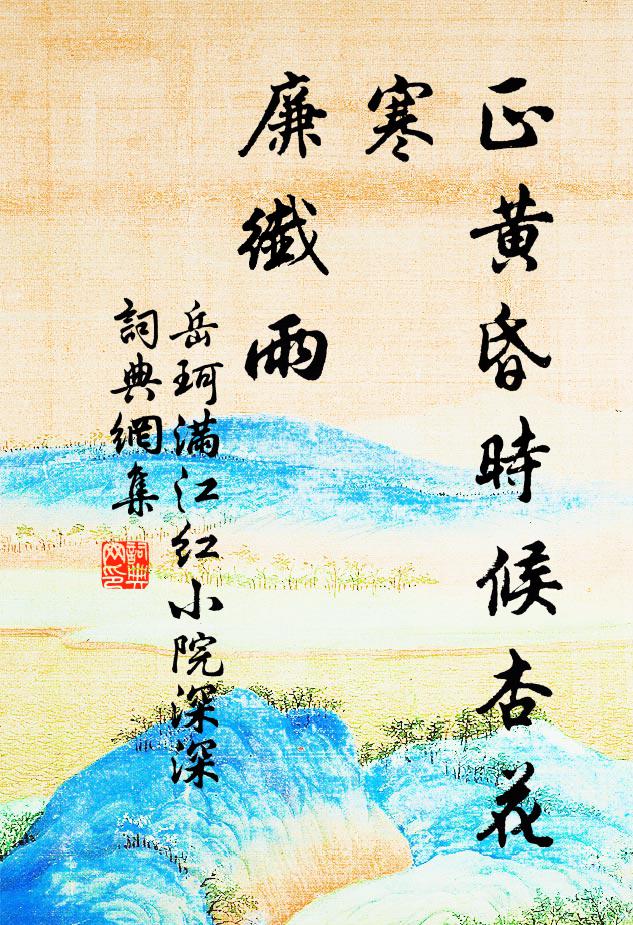 正黄昏時候杏花
寒
廉纖雨
岳珂满江红小院深深
詞典網集
詞典
网印